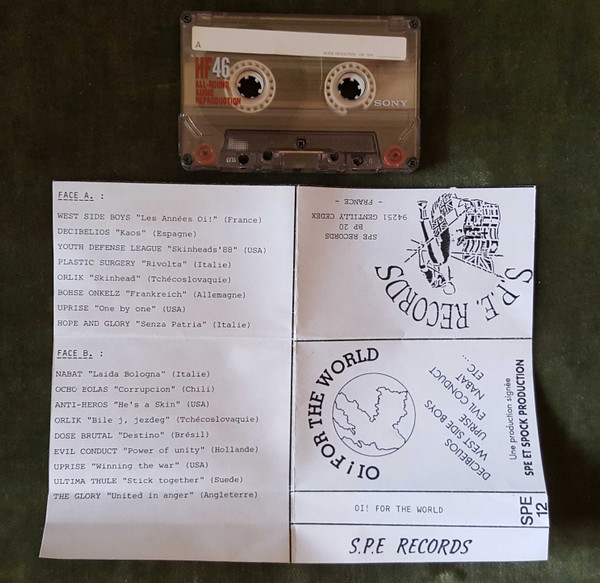 A
HF46
ALL-ROUND
AUDIO
REPRODUCTION
SONY
FACE A. :
WEST SIDE BOYS "Les Années Oi!" (France)
DECIBELIOS "Kaos" (Espagne)
YOUTH DEFENSE LEAGUE "Skinheads'88" (USA)
PLASTIC SURGERY "Rivolta" (Italie)
ORLIK "Skinhead" (Tchécoslovaquie)
BOHSE ONKELZ "Frankreich" (Allemagne)
UPRISE "One by one" (USA)
HOPE AND GLORY "Senza Patria" (Italie)
FACE B. :
NABAT "Laida Bologna" (Italie)
OCHO BOLAS "Corrupcion" (Chili)
ANTI-HEROS "He's a Skin" (USA)
ORLIK "Bile j, jezdeg" (Tchécoslovaquie)
DOSE BRUTAL "Destino" (Brésil)
EVIL CONDUCT "Power of unity" (Hollande)
UPRISE "Winning the war" (USA)
ULTIMA THULE "Stick together" (Suede)
THE GLORY "United in anger" (Angleterre)
S.P.E. RECORDS
SPE RECORDS
BP 20
94251 GENTILLY CEDEX
- FRANCE -
OI! FOR THE WORLD
DECIBELIOS
WEST SIDE BOYS
UPRISE
EVIL CONDUCT
NABAT
ETC ...
Une production signée
SPE ET SPOCK PRODUCTION
OI! FOR THE WORLD
SPE
12
S.P.E RECORDS